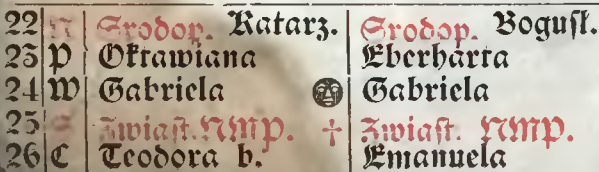 22 N Srodop. Katarz. Srodop. Bogusł.
23 P Oktawiana Eberharta
24 W Gabriela Gabriela
25 S Zwiast. NMP. † Zwiast. NMP.
26 C Teodora b. Emanuela